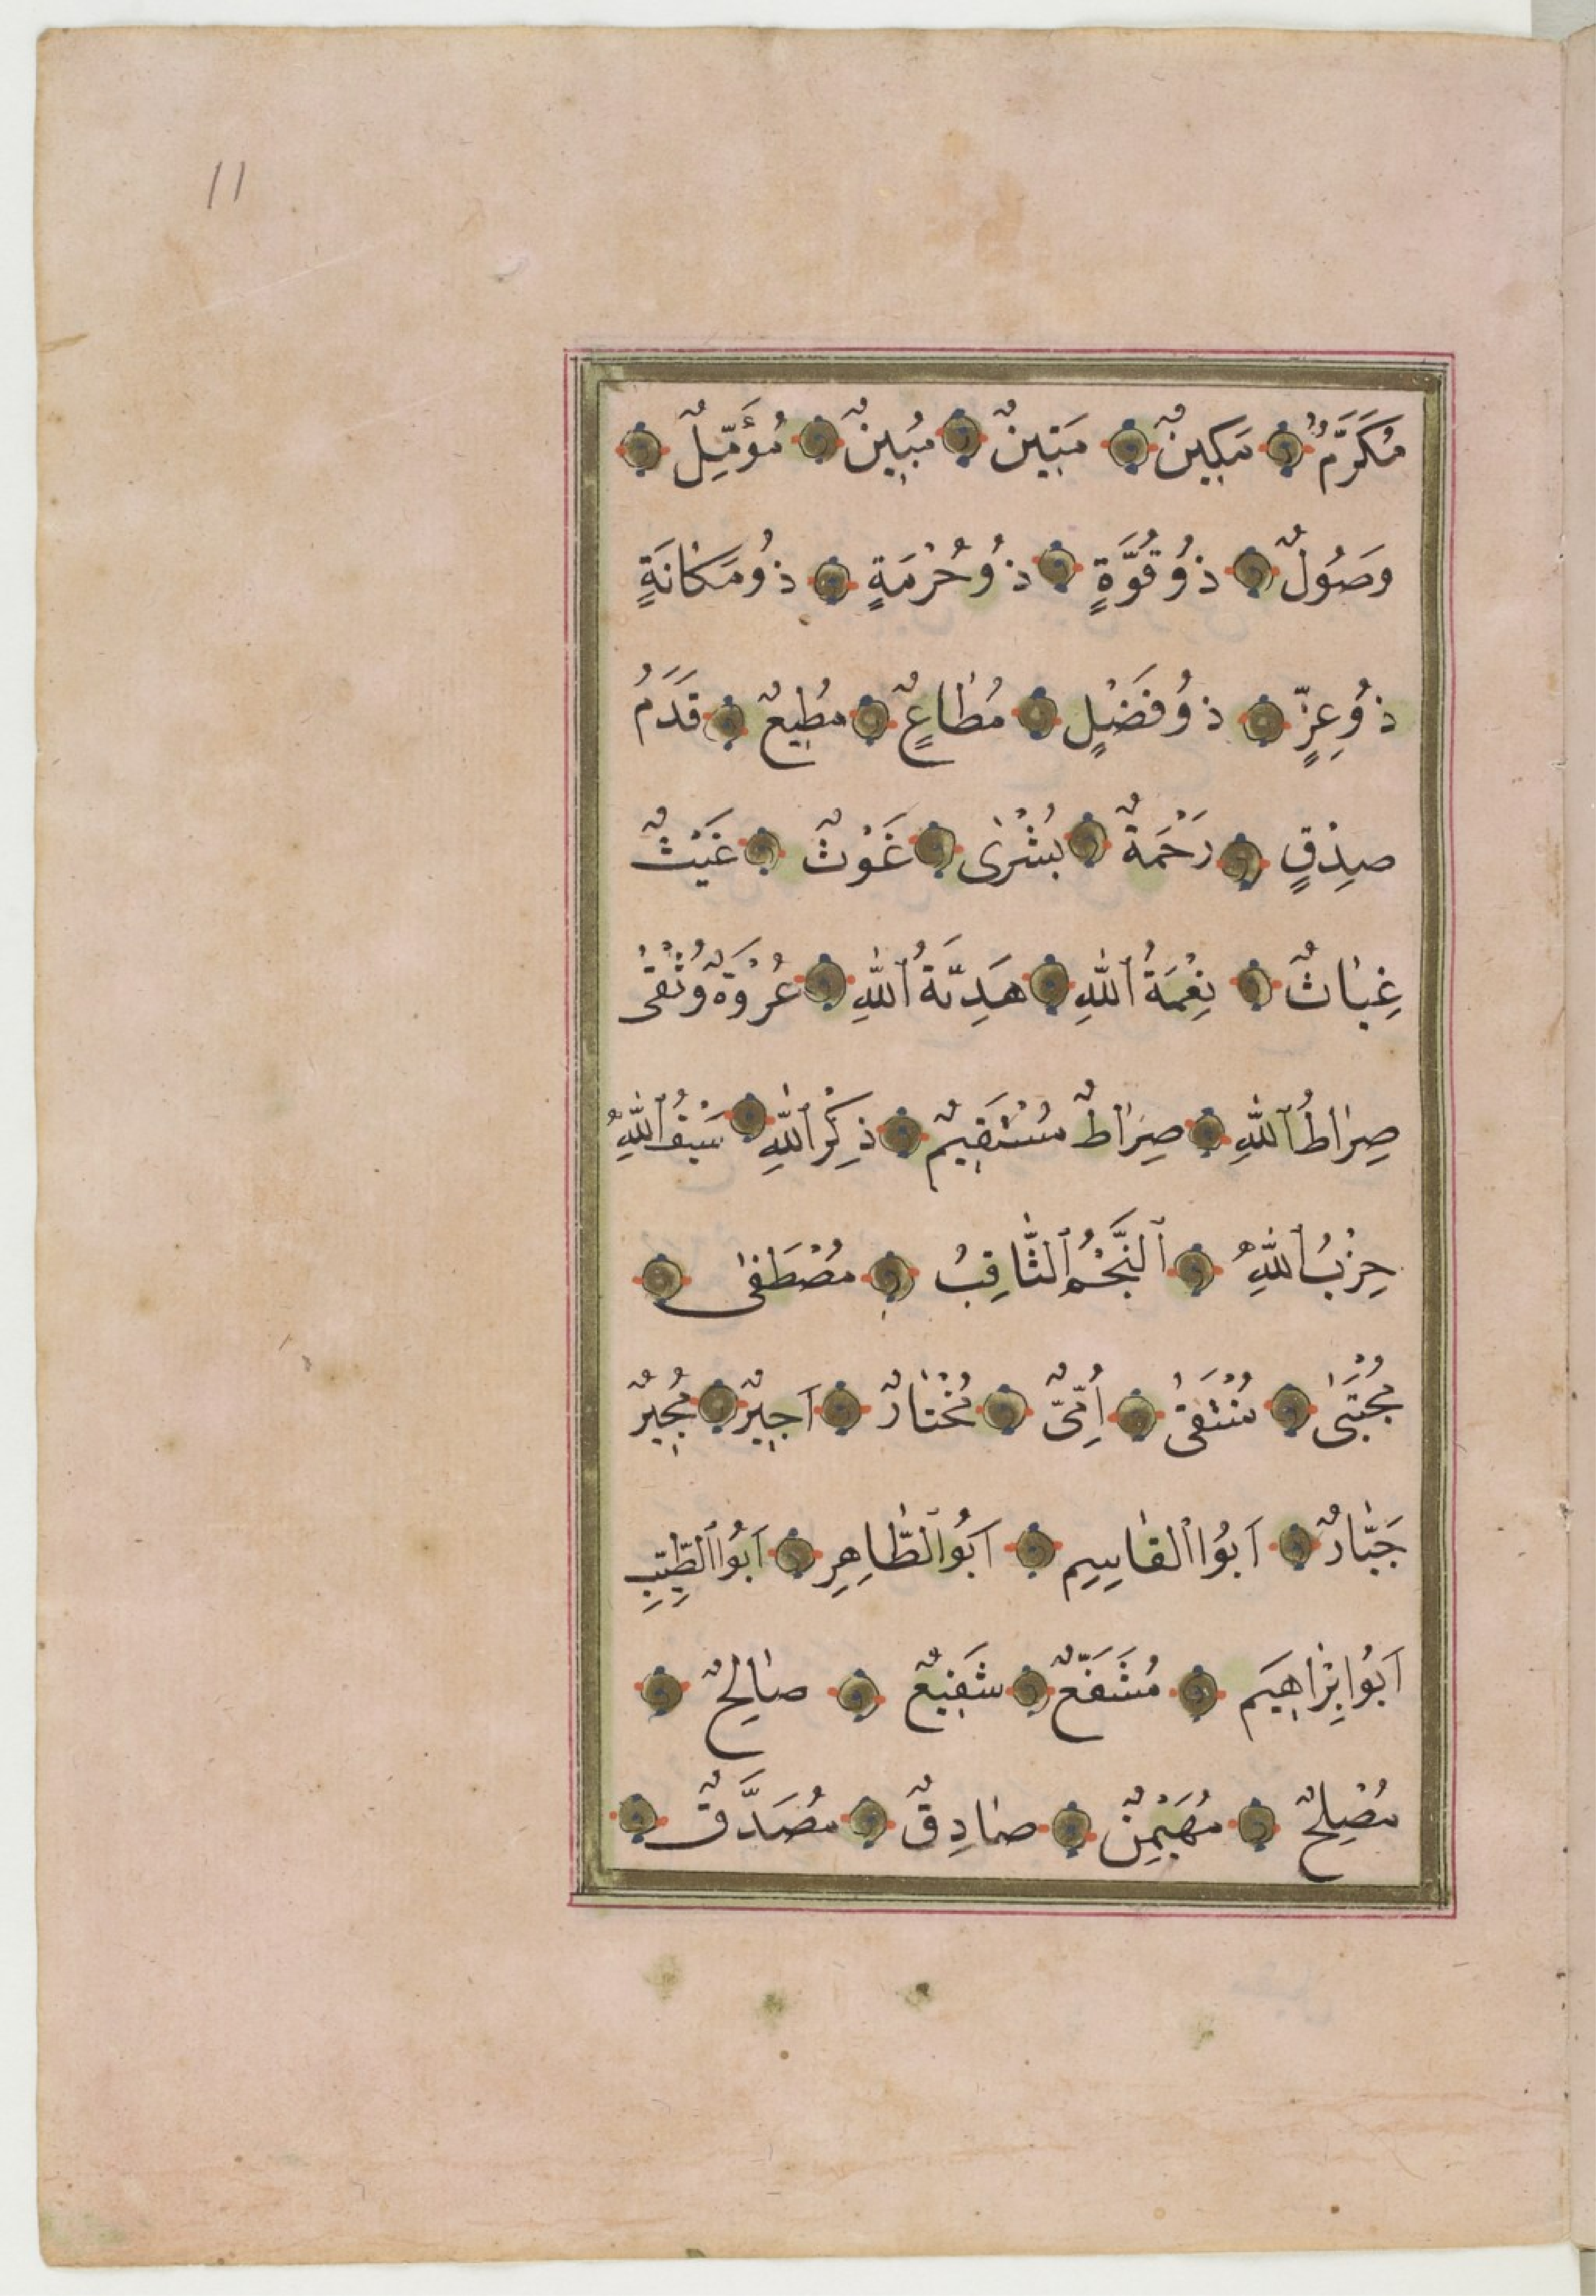 11
مُكَرَّمٌ مَكِينٌ مَتِينٌ مُبِينٌ مُؤَمِّلٌ
وَصُولٌ ذُوقُوَّةٍ ذُوحُرْمَةٍ ذُومَكَانَةٍ
ذُوعِزٍّ ذُوفَضْلٍ مُطَاعٍ مُطِيعٌ قَدَمُ
صِدْقٍ رَحْمَةٌ بُشْرٰى غَوْثٌ غَيْثٌ
غِيَاثٌ نِعْمَةُ ٱللّٰهِ هَدِيَّةُ ٱللّٰهِ عُرْوَةٌ وُثْقٰى
صِرَاطُ ٱللّٰهِ صِرَاطٌ مُسْتَقِيمٌ ذِكْرُ ٱللّٰهِ سَيْفُ ٱللّٰهِ
حِزْبُ ٱللّٰهِ ٱلنَّجْمُ ٱلثَّاقِبُ مُصْطَفٰى
مُجْتَبٰى مُنْتَقٰى اُمِّيٌّ مُخْتَارٌ اَجِيرٌ مُجِيرٌ
جَبَّارٌ اَبُوا ٱلقَاسِمِ اَبُوا ٱلطَّاهِرِ اَبُوا ٱلطَّيِّبِ
اَبُوا اِبْرَاهِيَم مُشَفَّعٌ شَفِيعٌ صَالِحٌ
مُصْلِحٌ مُهَيْمِنٌ صَادِقٌ مُصَدَّقٌ